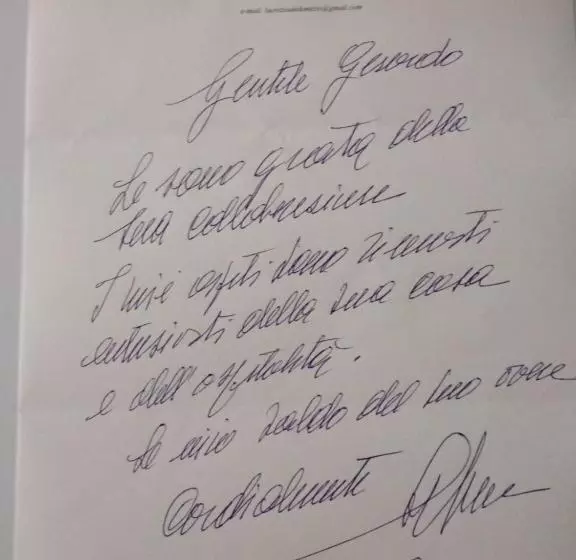 Gentile Gerardo
Le sono grata della
sua collaborazione
I miei ospiti sono rimasti
entusiasti della sua casa
e dell'ospitalità.
Le invio saldo del suo avere
Cordialmente